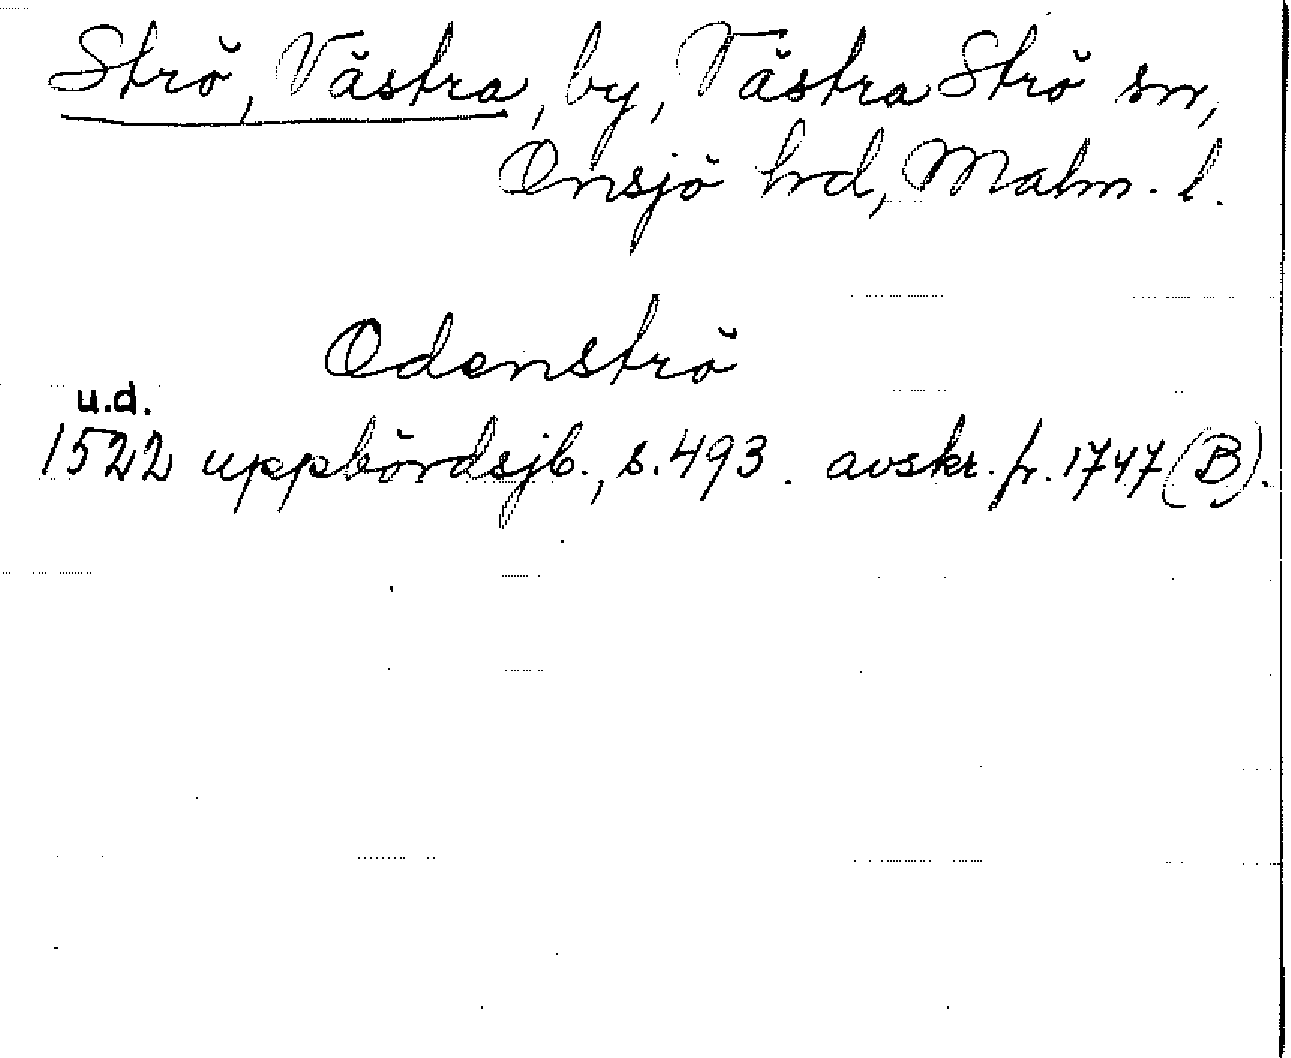 Strö, Västra, by, Västra Strö sn,
Onsjö hrd, Malm. l.
Odenströ
u.d.
1522 uppbördsjb., s. 493. avskr. fr. 1747 (B).